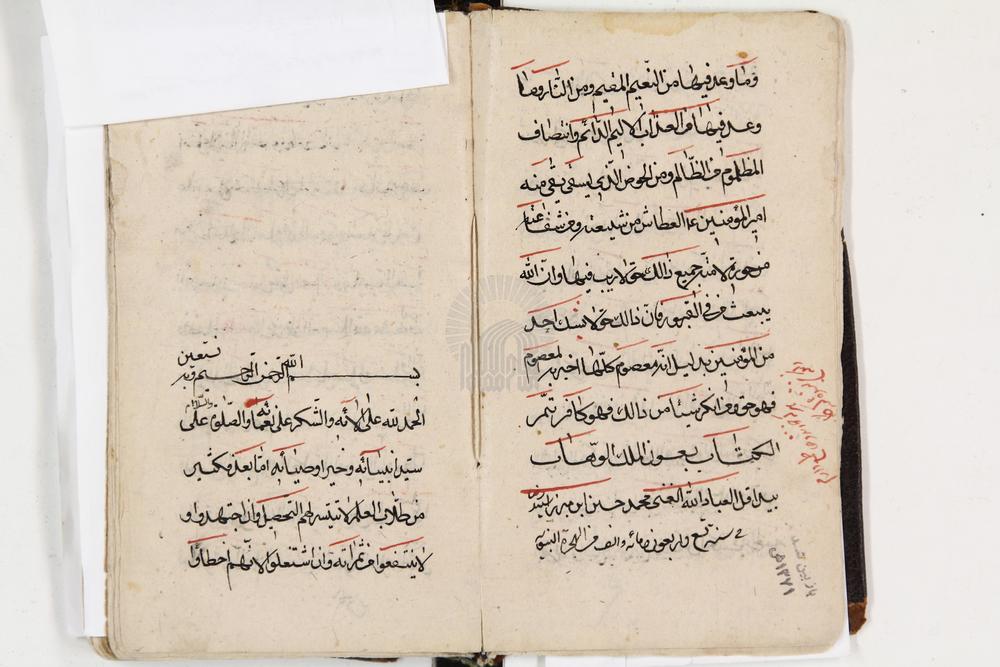 وما وعد فيها من النعيم المقيم ومن النار وما
وعد فيها من العذاب الاليم الدائم وانتصاف
المظلوم من الظالم ومن الحوض الذي يسقى منه
امير المؤمنين ع العطاش من شيعته ومن شفاعته
جميع ذالك حق لا ريب فيها وان الله
يبعث من في القبور فان ذالك حق لا يشك احد
من المؤمنين بدليل انه معصوم كلها اخبر به المعصوم
فهو حق ومن انكر شيئا من ذالك فهو كافر تم
الكتاب بعون الملك الوهاب
بيد اقل العباد الله الغني محمد حسين ابن ميرزا
في سنة تسع واربعون ومائة والف من الهجرة النبوية
بازبین شد
۱۳۷۱
بسم الله الرحمن الرحيم وبه نستعين
الحمد لله على الائه والشكر على نعمائه والصلوة والسلام على
سيد انبيائه وخير اوصيائه اما بعد فكثير
من طلاب العلم لا يتيسر لهم التحصيل وان اجتهدوا و
لا ينتفعوا من ثمراته وان اشتغلوا لانهم اخطاؤا